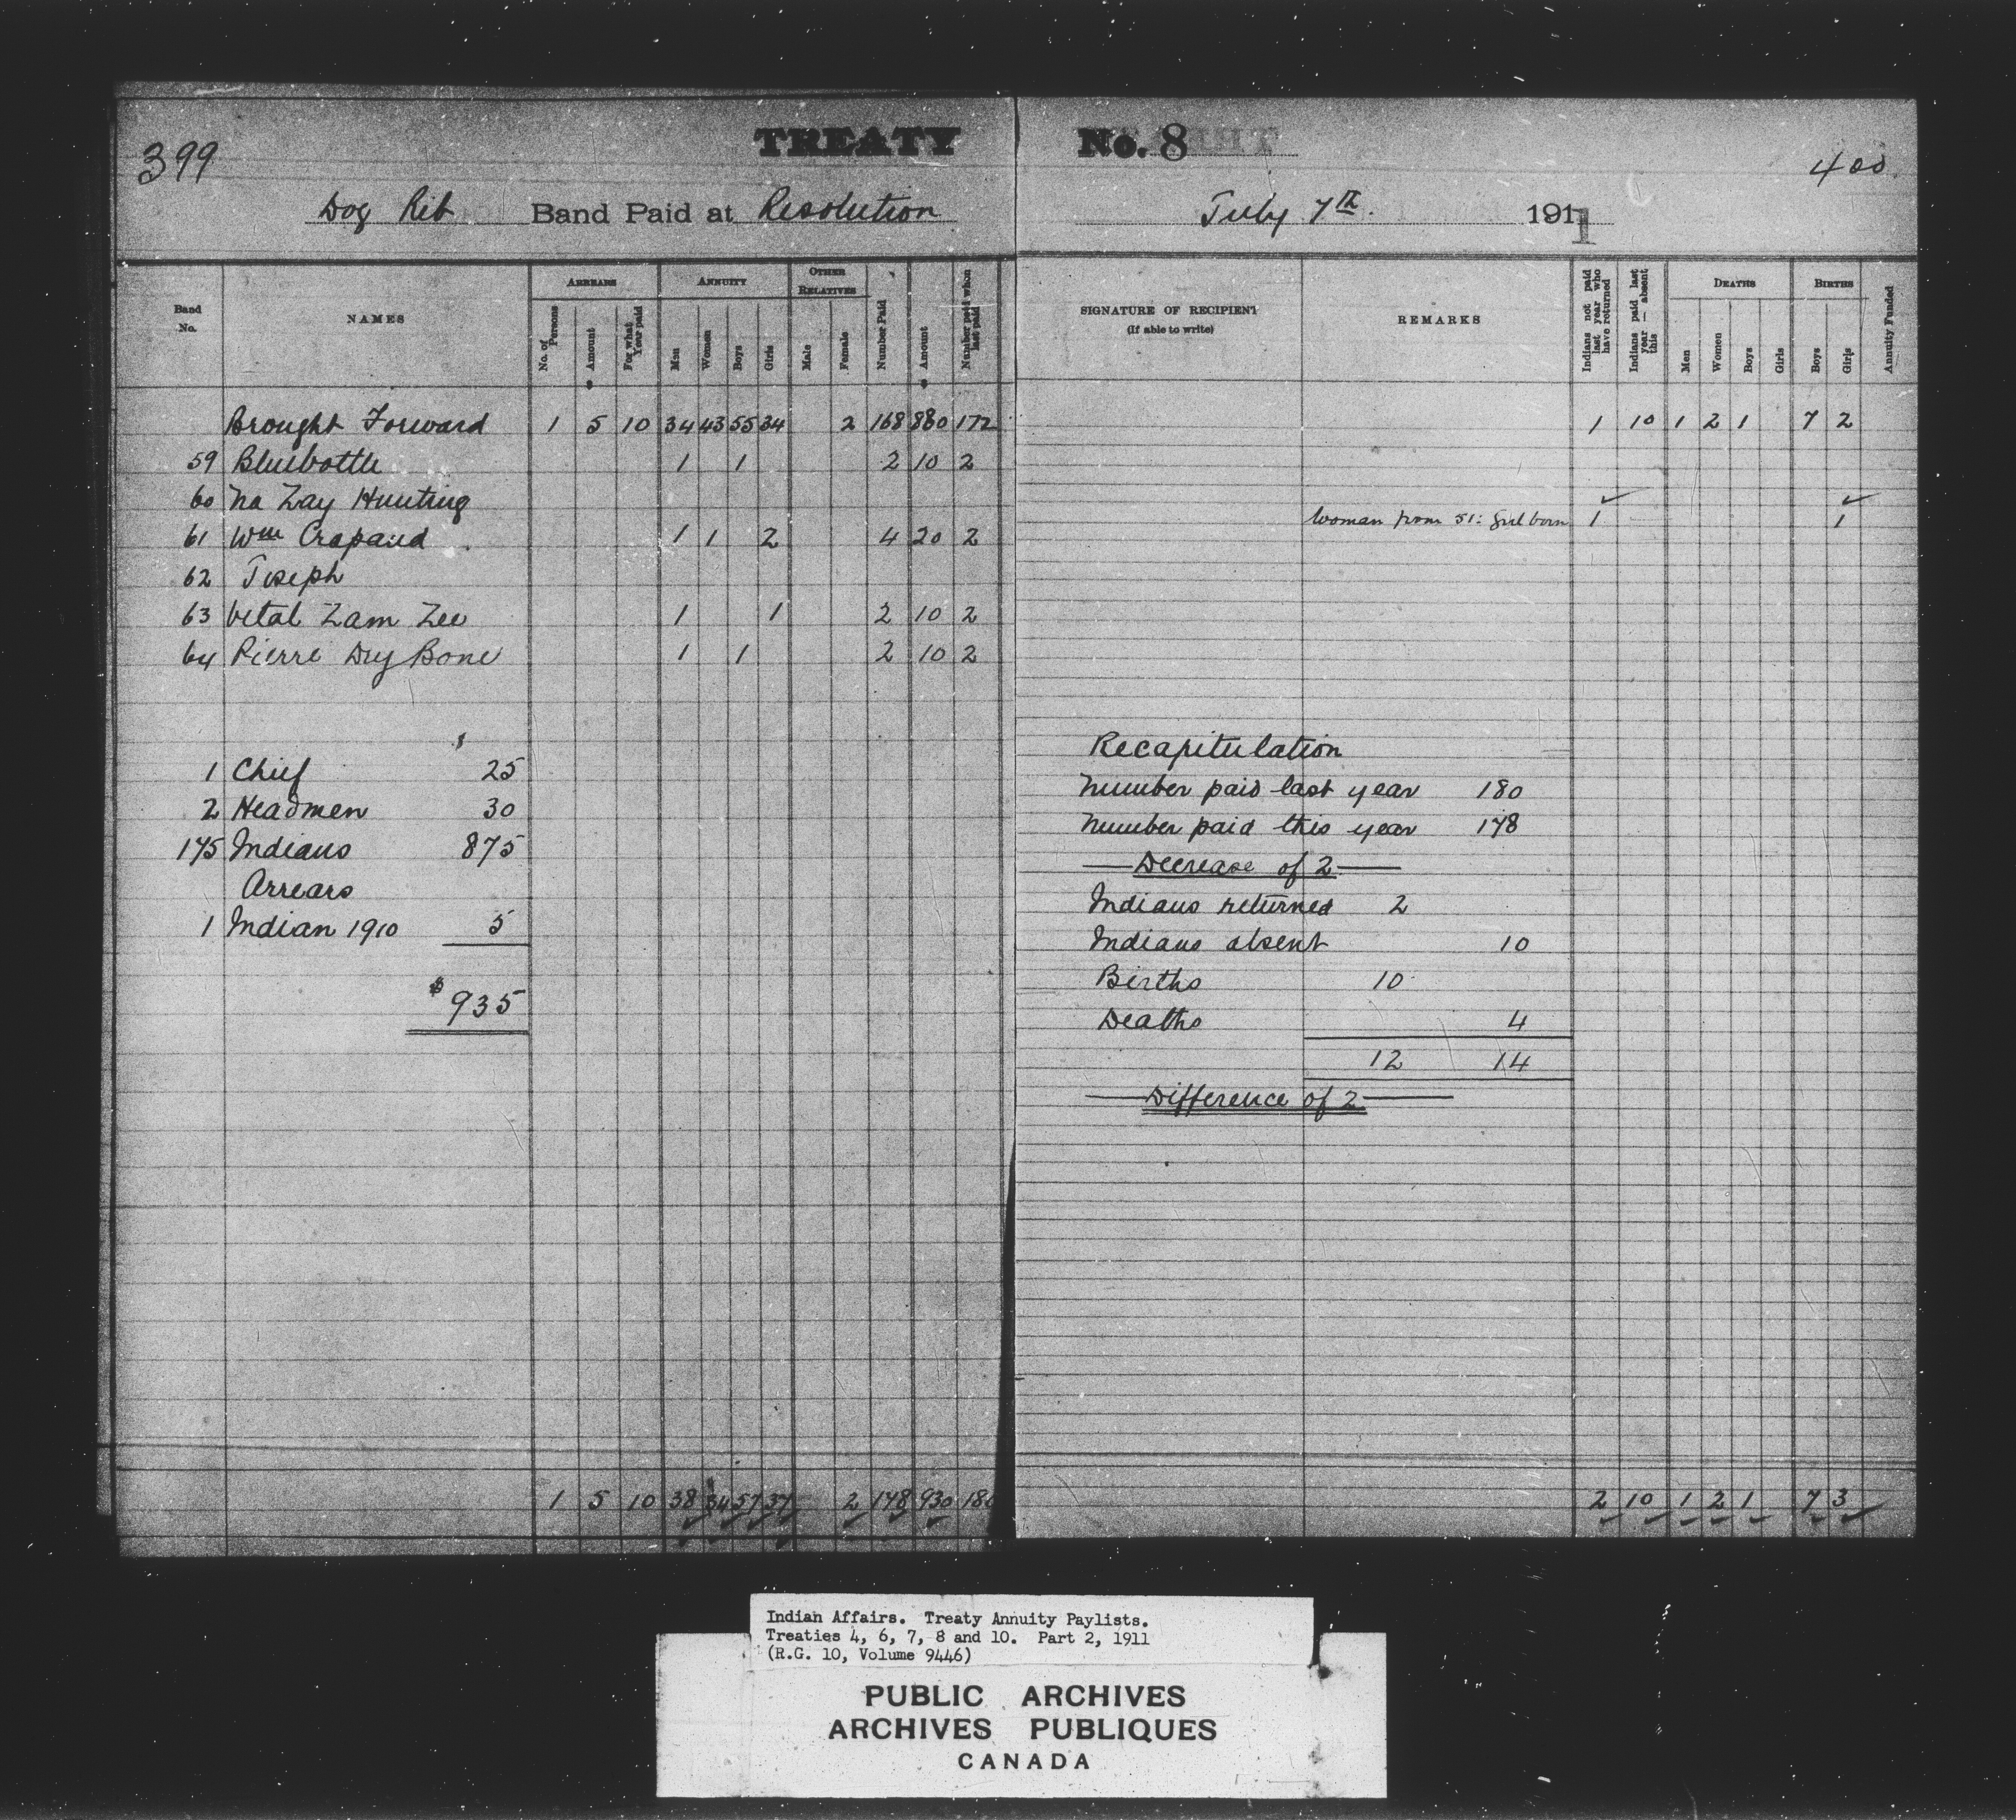 399
TREATY No. 8
400
Dog Rib Band Paid at Resolution July 7th. 1911
Band No.
NAMES
ARREARS
No. of Persons
Amount
For what Year paid
ANNUITY
Men
Women
Boys
Girls
OTHER RELATIVES
Male
Female
Number Paid
Amount
Number paid when last paid
SIGNATURE OF RECIPIENT
(if able to write)
REMARKS
Indians not paid last year who have returned
Indians paid last year — absent this
DEATHS
Men
Women
Boys
Girls
BIRTHS
Boys
Girls
Annuity Funded
Brought Forward 1 5 10 34 43 55 34 2 168 880 172 1 10 1 2 1 7 2
59 Bluebottle 1 1 2 10 2
60 Na Zay Hunting
61 Wm Crapaud 1 1 2 4 20 2 Woman from 51: Girl born 1 1
62 Joseph
63 Vital Zam Zee 1 1 2 10 2
64 Pierre Dry Bone 1 1 2 10 2
1 Chief 25
2 Headmen 30
175 Indians 875
Arrears
1 Indian 1910 5
$935
Recapitulation
Number paid last year 180
Number paid this year 178
Decrease of 2
Indians returned 2
Indians absent 10
Births 10
Deaths 4
12 14
Difference of 2
1 5 10 38 57 37 2 178 930 180 2 10 1 2 1 7 3
Indian Affairs. Treaty Annuity Paylists.
Treaties 4, 6, 7, 8 and 10. Part 2, 1911
(R.G. 10, Volume 9446)
PUBLIC ARCHIVES
ARCHIVES PUBLIQUES
CANADA